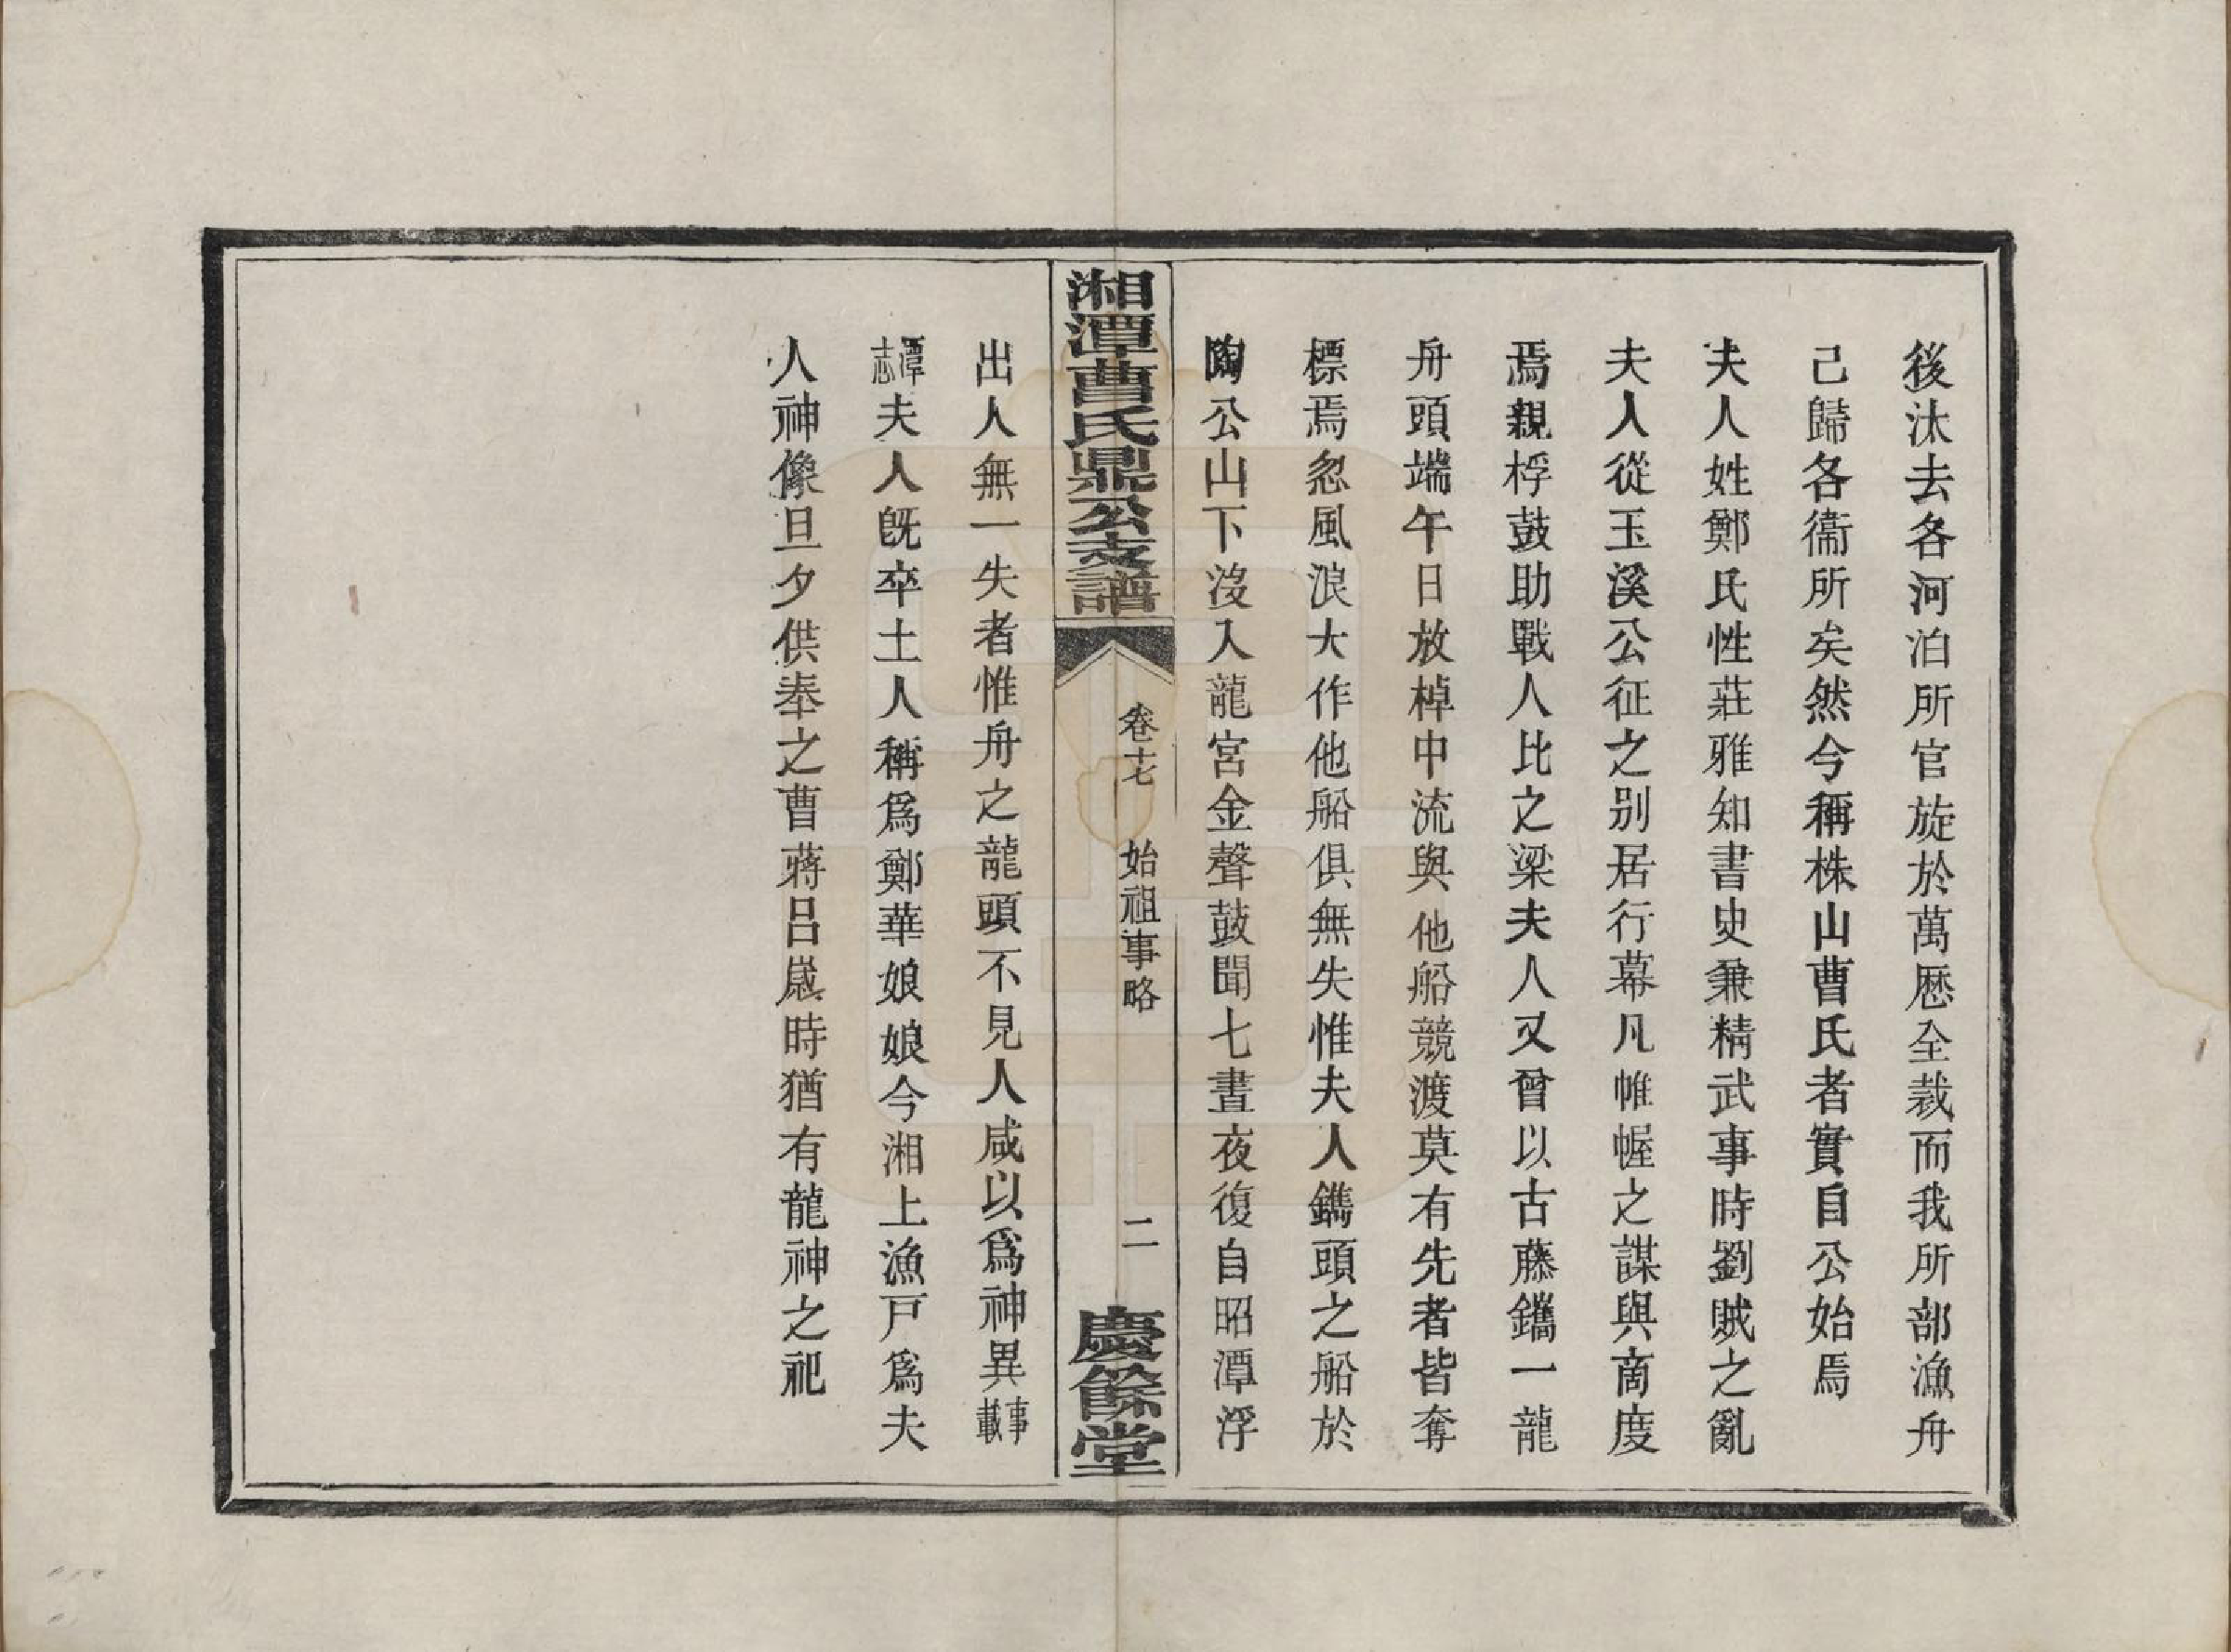 後汰去各河泊所官旋於萬厯全裁而我所部漁舟
己歸各衞所矣然今稱株山曹氏者實自公始焉
夫人姓鄭氏性莊雅知書史兼精武事時劉賊之亂
夫人從玉溪公征之别居行幕凡帷幄之謀與商度
焉親桴鼓助戰人比之梁夫人又曾以古藤鐫一龍
舟頭端午日放棹中流與他船競渡莫有先者皆奪
標焉忽風浪大作他船俱無失惟夫人鐫頭之船於
陶公山下沒入龍宮金聲鼓聞七晝夜復自昭潭浮
湘潭曹氏鼎公支譜
卷十七
始祖事略
二
慶餘堂
出人無一失者惟舟之龍頭不見人咸以爲神異事載
潭志夫人旣卒土人稱爲鄭華娘娘今湘上漁戸爲夫
人神像旦夕供奉之曹蔣呂歲時猶有龍神之祀